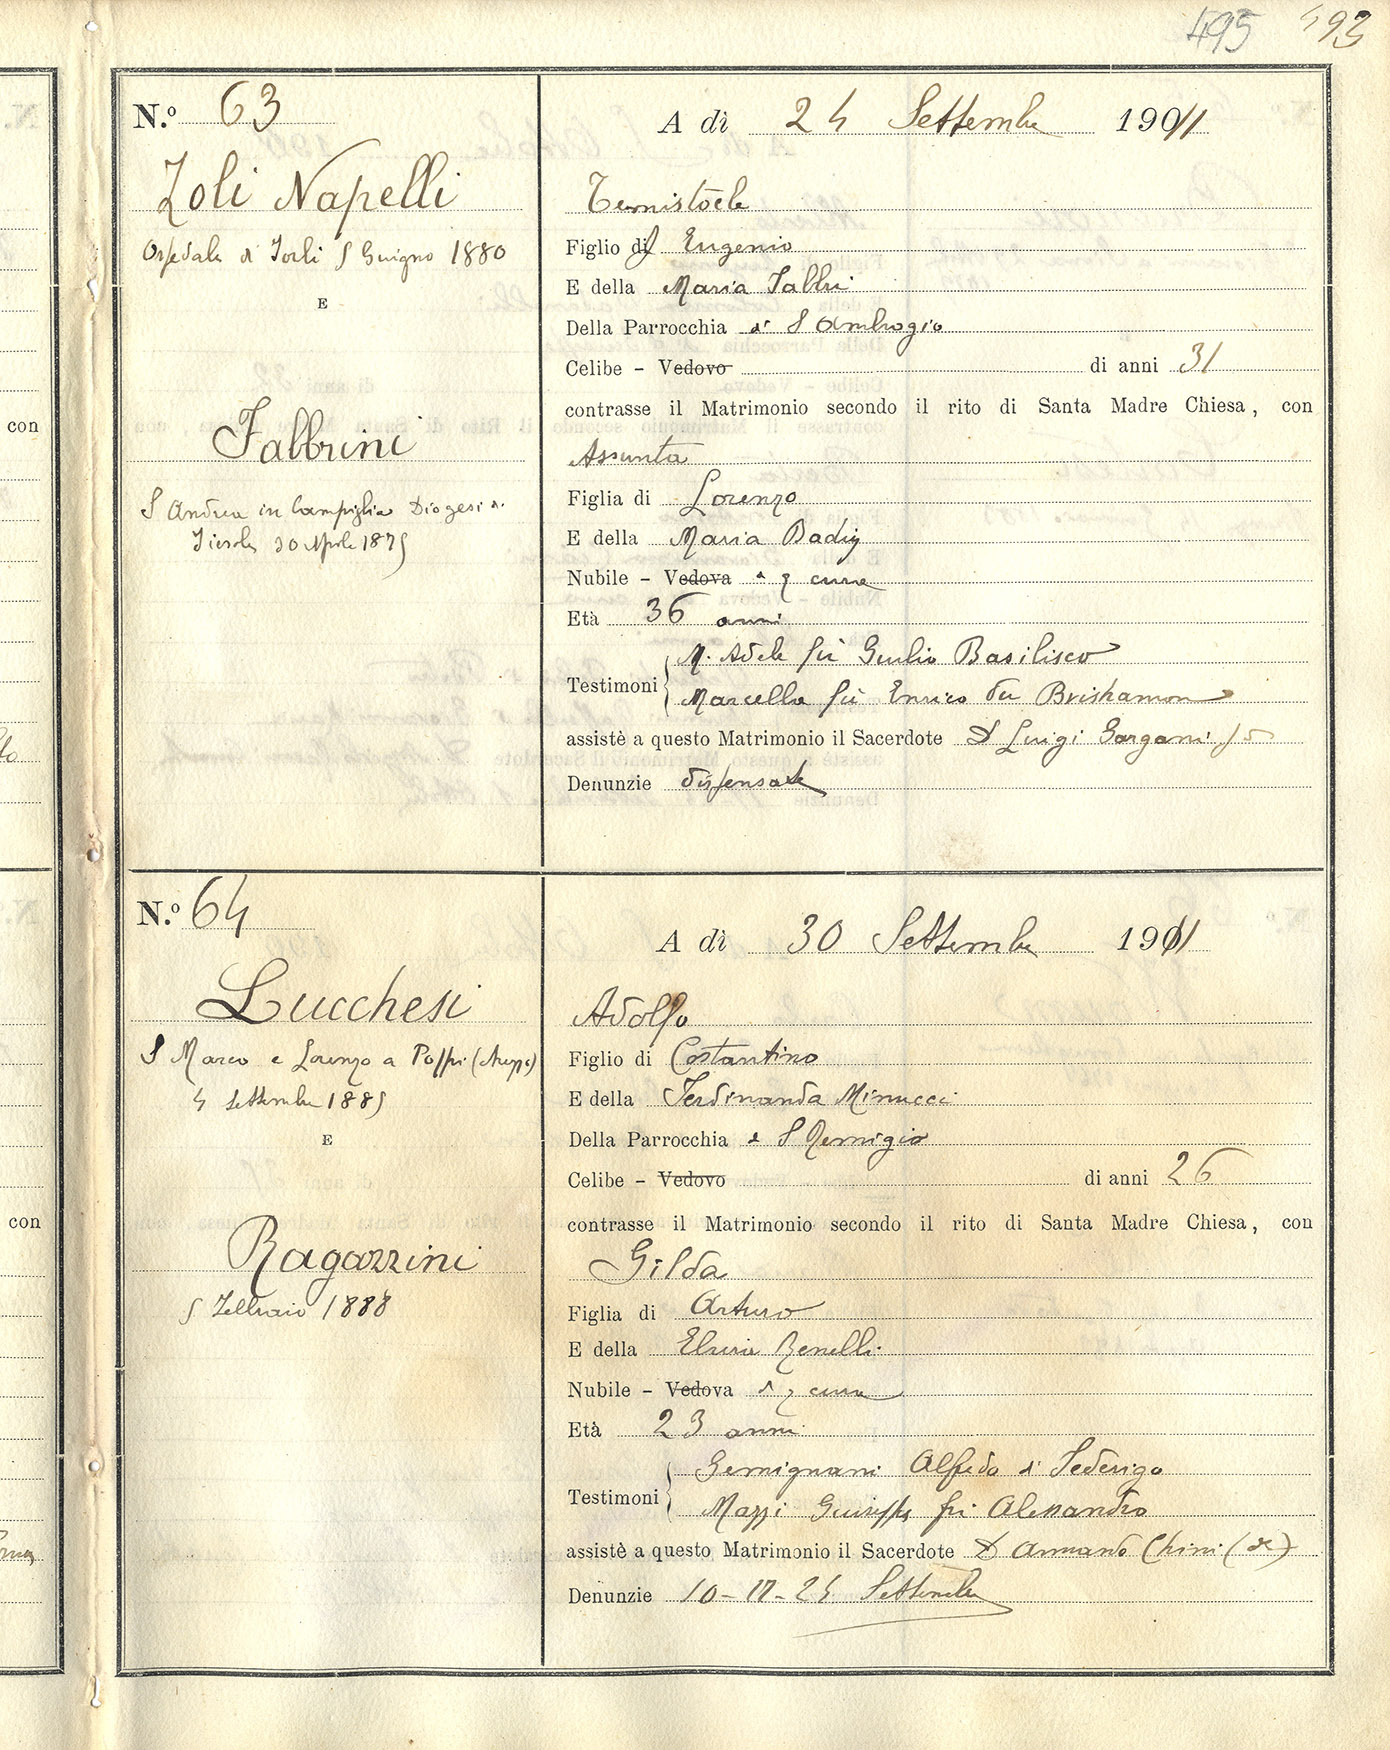 495 493
N.º 63
Zoli Napelli
Ospedale di Forlì 5 Giugno 1880
E
Fabbrini
S Andrea in Campiglia Diogesi di
Fiesole 30 Aprile 1875
A dì 24 Settembre 1911
Temistocle
Figlio di Eugenio
E della Maria Fabbri
Della Parrocchia di S Ambrogio
Celibe - Vedovo di anni 31
contrasse il Matrimonio secondo il rito di Santa Madre Chiesa, con
Assunta
Figlia di Lorenzo
E della Maria Badij
Nubile - Vedova di q cura
Età 36 anni
Testimoni M. Adele fu Giulio Basilisco
Marcella fu Enrico
assistè a questo Matrimonio il Sacerdote D Luigi Gargani
Denunzie dispensate
N.º 64
Lucchesi
S Marco e Lorenzo a Poppi (Arezzo)
4 Settembre 1885
E
Ragazzini
5 Febbraio 1888
A dì 30 Settembre 1911
Adolfo
Figlio di Costantino
E della Ferdinanda Minucci
Della Parrocchia di S Remigio
Celibe - Vedovo di anni 26
contrasse il Matrimonio secondo il rito di Santa Madre Chiesa, con
Gilda
Figlia di Arturo
E della Elvira Benelli
Nubile - Vedova di q cura
Età 23 anni
Testimoni Gemignani Alfredo di Federigo
Mazzi Giuseppe fu Alessandro
assistè a questo Matrimonio il Sacerdote D Armando Chini
Denunzie 10-17-24 Settembre
con
con